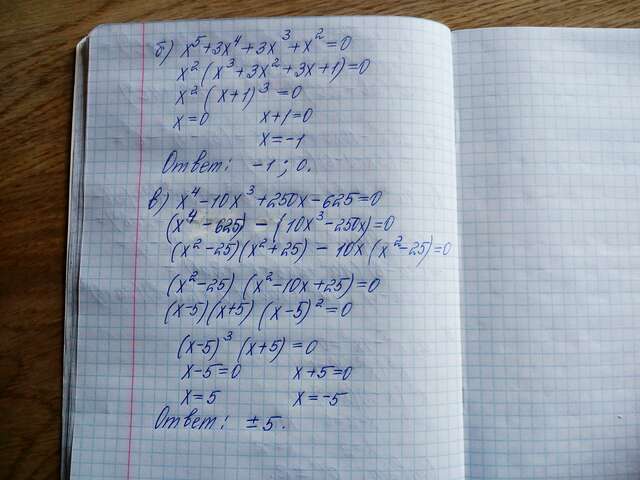 б) x⁵+3x⁴+3x³+x²=0
x²(x³+3x²+3x+1)=0
x²(x+1)³=0
x=0 x+1=0
x=-1
Ответ: -1; 0.
в) x⁴-10x³+250x-625=0
(x⁴-625)-(10x³-250x)=0
(x²-25)(x²+25)-10x(x²-25)=0
(x²-25)(x²-10x+25)=0
(x-5)(x+5)(x-5)²=0
(x-5)³(x+5)=0
x-5=0 x+5=0
x=5 x=-5
Ответ: ±5.